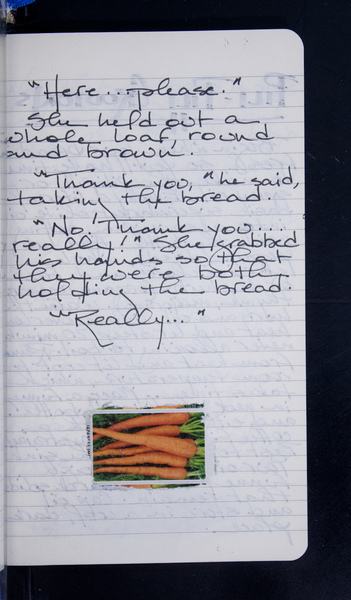 "Here...please."
She held out a
whole loaf, round
and brown.
"Thank you," he said,
taking the bread.
"No! Thank you....
really!" She grabbed
his hands so that
they were both
holding the bread.
"Really..."